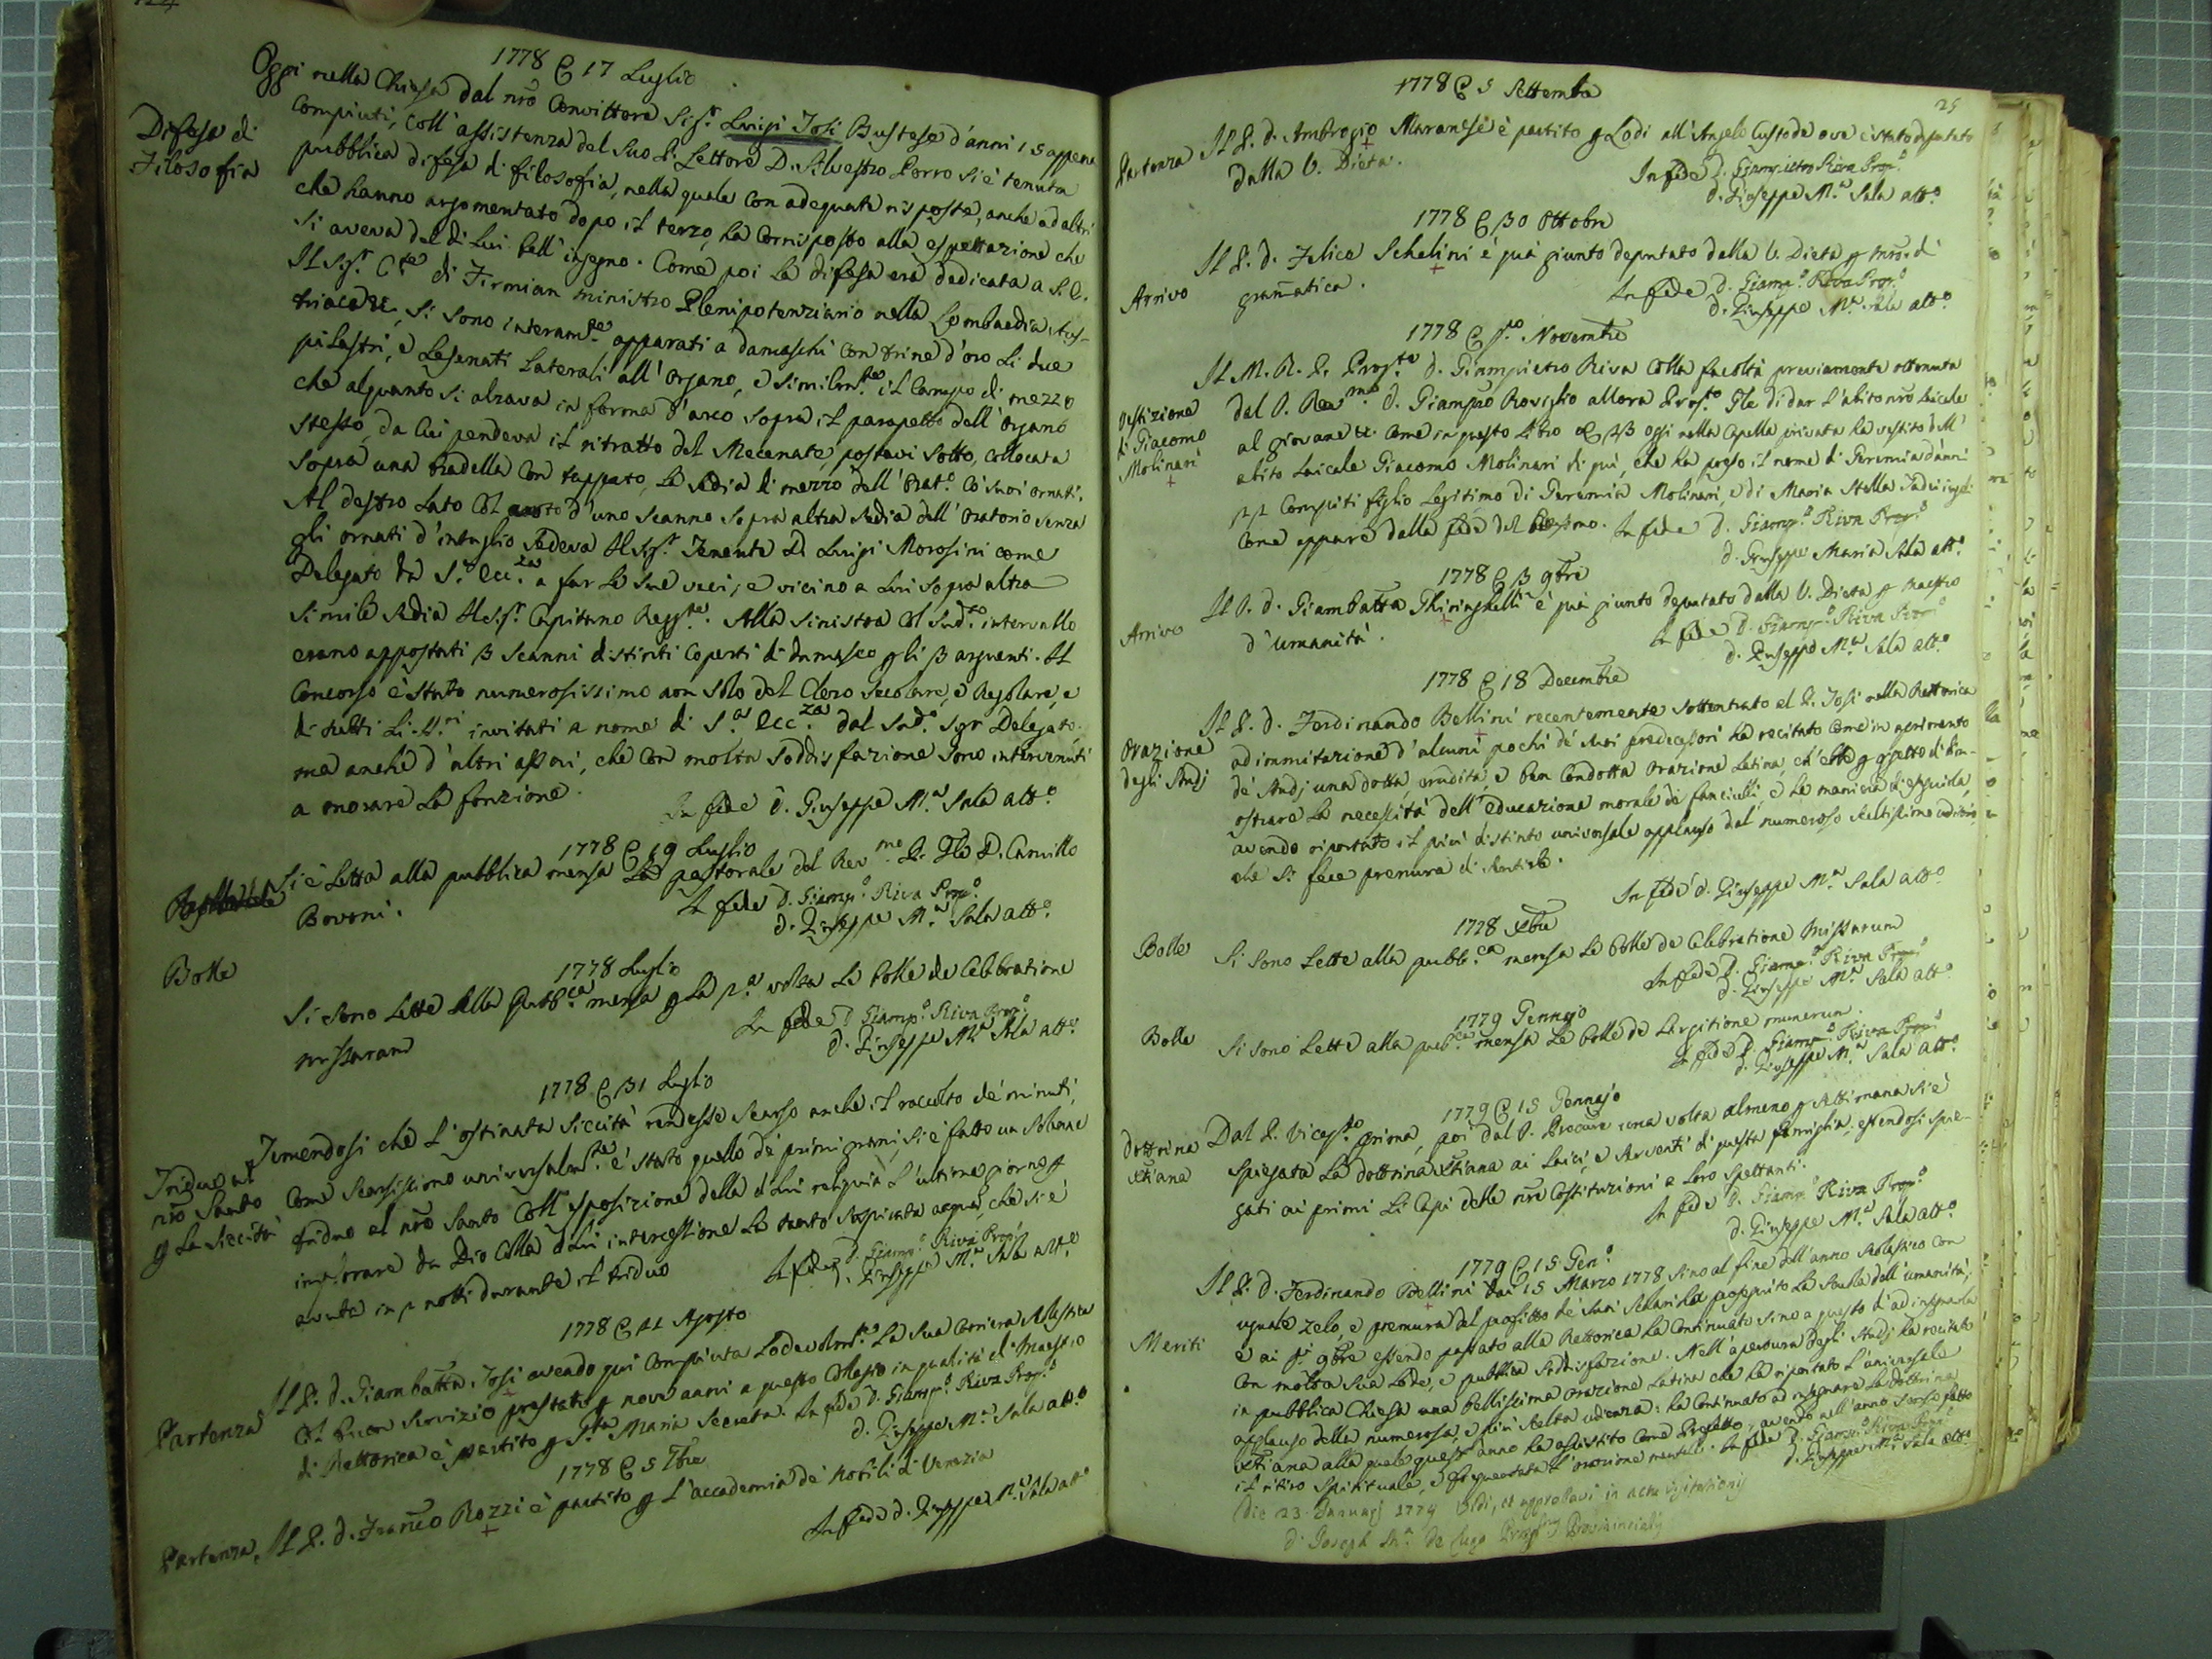 1778 @ 17 Luglio
Oggi nella Chiesa dal nrõ Convittore Sig.r Luigi Josi Bustese d'anni 15 appena
Difesa di
Filosofia
compiuti, coll'assistenza del suo P. Lettore D. Silvestro Porro si è tenuta
pubblica difesa di filosofia, nella quale con adequate risposte, anche ad altri
che hanno argomentato dopo il terzo, ha corrisposto alla espettazione che
si aveva del di lui bell'ingegno. Come poi la difesa era dedicata a S. E.
Il Sig.r C.te di Firmian ministro Plenipotenziario nella Lombardia Aus-
triaca &, si sono interam.te apparati a damaschi con trine d'oro li due
pilastri, e lesenati laterali all'organo, e similm.te il campo di mezzo
che alquanto si alzava in forma d'arco sopra il parapetto dell'organo
stesso, da cui pendeva il ritratto del Mecenate, postavi sotto, collocata
sopra una bradella con tappeto, la sedia di mezzo dell'Orat.o co' suoi ornati.
Al destro lato col d'uno scanno sopra altra sedia dell'oratorio senza
gli ornati d'intaglio sedeva Il Sig.r Tenente D. Luigi Morosini come
Delegato da S. Ecc.za a far le sue veci, e vicino a lui sopra altra
simile sedia Il Sig.r Capitano Regg.te. Alla sinistra col sud.o intervallo
erano appostati 3 scanni distinti coperti di damasco p gli 3 arguenti. Il
Concorso è stato numerosissimo non solo del Clero secolare, e Regolare, e
di tutti li invitati a nome di S.a Ecc.za dal Sud.o Sigr Delegato.
ma anche d'altri assai, che con molta soddisfazione sono intervenuti
a onorare la fonzione.
In fede d. Giuseppe M.a Sala att.o
1778 @ 19 Luglio
Si è letta alla pubblica mensa La pastorale del Rev.mo P. Gle D. Camillo
Bovoni.
In fede D. Giamp.o Riva Prop.o
d. Giuseppe M.a Sala att.o
Bolle
1778 Luglio
Si sono lette alla Pubb.ca mensa p la 2.a volta Le bolle de Celebratione
missarum
In fede D. Giamp.o Riva Prop.o
d. Giuseppe M.a Sala att.o
1778 @ 31 Luglio
Triduo al
nrõ Santo
p la Siccità
Temendosi che L'ostinata siccità rendesse scarso anche il raccolto de' minuti,
come scarsissimo universalm.te è stato quello de' primi grani, si è fatto un solenne
triduo al nrõ Santo coll'esposizione della di lui reliquia l'ultimo giorno p
implorare da Dio colla di lui intercessione la tanto sospirata acqua, che si è
avuta in 2 notti durante il triduo
In fede d. Giamp.o Riva Prop.o
d. Giuseppe M.a Sala att.o
1778 @ 21 Agosto
Partenza
Il P. d. Giambatta Josi avendo qui compiuta lodevolm.te la sua carriera scolastica
col buon servizio prestato p nove anni a questo Collegio in qualità di Maestro
di Rettorica è partito p S.ta Maria Secreta. In fede D. Giamp.o Riva Prop.o
d. Giuseppe M.a Sala att.o
1778 @ 5 7bre
Partenza
Il P. d. Franco Rozzi è partito p L'accademia de' Nobili di Venezia
In fede d. Giuseppe M.a Sala att.o
25
1778 @ 5 Settembre
Partenza
Il P. d. Ambrogio Maranesi è partito p Lodi all'Angelo Custode ove è stato deputato
dalla V. Dieta.
In fede D. Giampietro Riva Prop.o
d. Giuseppe M.a Sala att.o
1778 @ 30 Ottobre
Arrivo
Il P. d. Felice Schelini è quà giunto deputato dalla V. Dieta p mrõ di
gramatica.
In fede D. Giamp.o Riva Prop.o
d. Giuseppe M.a Sala att.o
1778 @ p.o Novembre
Vestizione
di Giacomo
Molinari
Il M. R. P. Prop.to d. Giampietro Riva colla facoltà previamente ottenuta
dal P. Rev.mo D. Giampro Roviglio allora Prop.to Gle di dar l'abito nrõ laicale
al giovane & come in questo Libro oggi nella Capella privata ha vestito dell'
abito laicale Giacomo Molinari di quì, che ha preso il nome di Geremia d'anni
22 compiti figlio legitimo di Geremia Molinari, e di Maria Stella
come appare dalla fede del In fede D. Giamp.o Riva Prop.o
d. Giuseppe Maria Sala att.o
1778 @ 3 9bre
Arrivo
Il P. d. Giambatta Ghiringhelli è quà giunto deputato dalla V. Dieta p maestro
d'umanità.
In fede D. Giamp.o Riva Prop.o
d. Giuseppe M.a Sala att.o
1778 @ 18 Decembre
Orazione
degli Studj
Il P. d. Ferdinando Bellini recentemente sottentrato al P. Josi nella Rettorica
ad immitazione d'alcuni pochi de' suoi predecessori ha recitato come in aprimento
de' Studj una dotta, erudita, e ben condotta orazione latina, ch'ebbe p oggetto di dim-
ostrare la necessità dell'educazione morale de' fanciulli, e la maniera di eseguirla,
avendo riportato il più distinto universale applauso dal numeroso sceltissimo uditorio,
che si fece premura di sentirlo.
In fede d. Giuseppe M.a Sala att.o
1778 Xbre
Bolle
Si sono lette alla pubb.ca mensa Le bolle de Celebratione Missarum
In fede D. Giamp.o Riva Prop.o
d. Giuseppe M.a Sala att.o
1779 Gennajo
Bolle
Si sono lette alla pub.ca mensa Le bolle de Largitione munerum.
In fede D. Giamp.o Riva Prop.o
d. Giuseppe M.a Sala att.o
1779 @ 15 Gennajo
dottrina
Xtiana
Dal P. Vicep.to prima, poi dal P. Procure una volta almeno p settimana si è
spiegata la dottrina Xtiana ai laici, e serventi di questa famiglia; essendosi spie-
gati ai primi li Capi delle nrẽ Costituzioni a loro spettanti.
In fede D. Giamp.o Riva Prop.o
d. Giuseppe M.a Sala att.o
1779 @ 15 Gen.o
Meriti
Il P. d. Ferdinando Bellini dai 15 Marzo 1778 sino al fine dell'anno scolastico con
uguale zelo, e premura del profitto de' suoi scolari ha proseguito la scuola dell'umanità;
e ai p.i 9bre essendo passato alla Rettorica ha continuato sino a questo dì ad insegnarla
con molta sua lode, e pubblica soddisfazione. Nell'apertura degli Studj ha recitato
in pubblica Chiesa una bellissima orazione latina che ha riportato l'universale
applauso della numerosa, e più scelta udienza: ha continuato ad insegnare la dottrina
Xtiana alla quale quest'anno ha assistito come Prefetto, avendo nell'anno scorso fatto
il ritiro spirituale, e frequentata l'orazione mentale. In fede D. Giamp.o Riva Prop.o
d. Giuseppe M.a Sala att.o
Die 23 Januarj 1779 Vidi, et approbavi in actu visitationis
d. Joseph M.a De Lugo Prov.lis